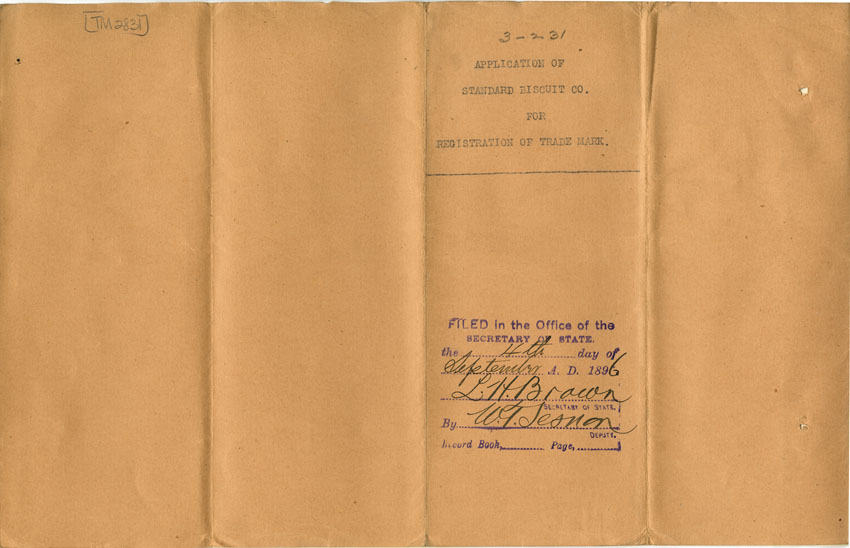 [TM2831]
3-231
APPLICATION OF
STANDARD BISCUIT CO.
FOR
REGISTRATION OF TRADE MARK.
FILED in the Office of the
SECRETARY OF STATE.
the 4th day of
September A. D. 1896
L. H. Brown
SECRETARY OF STATE.
By W. T. Sesnon
DEPUTY.
Record Book, Page,